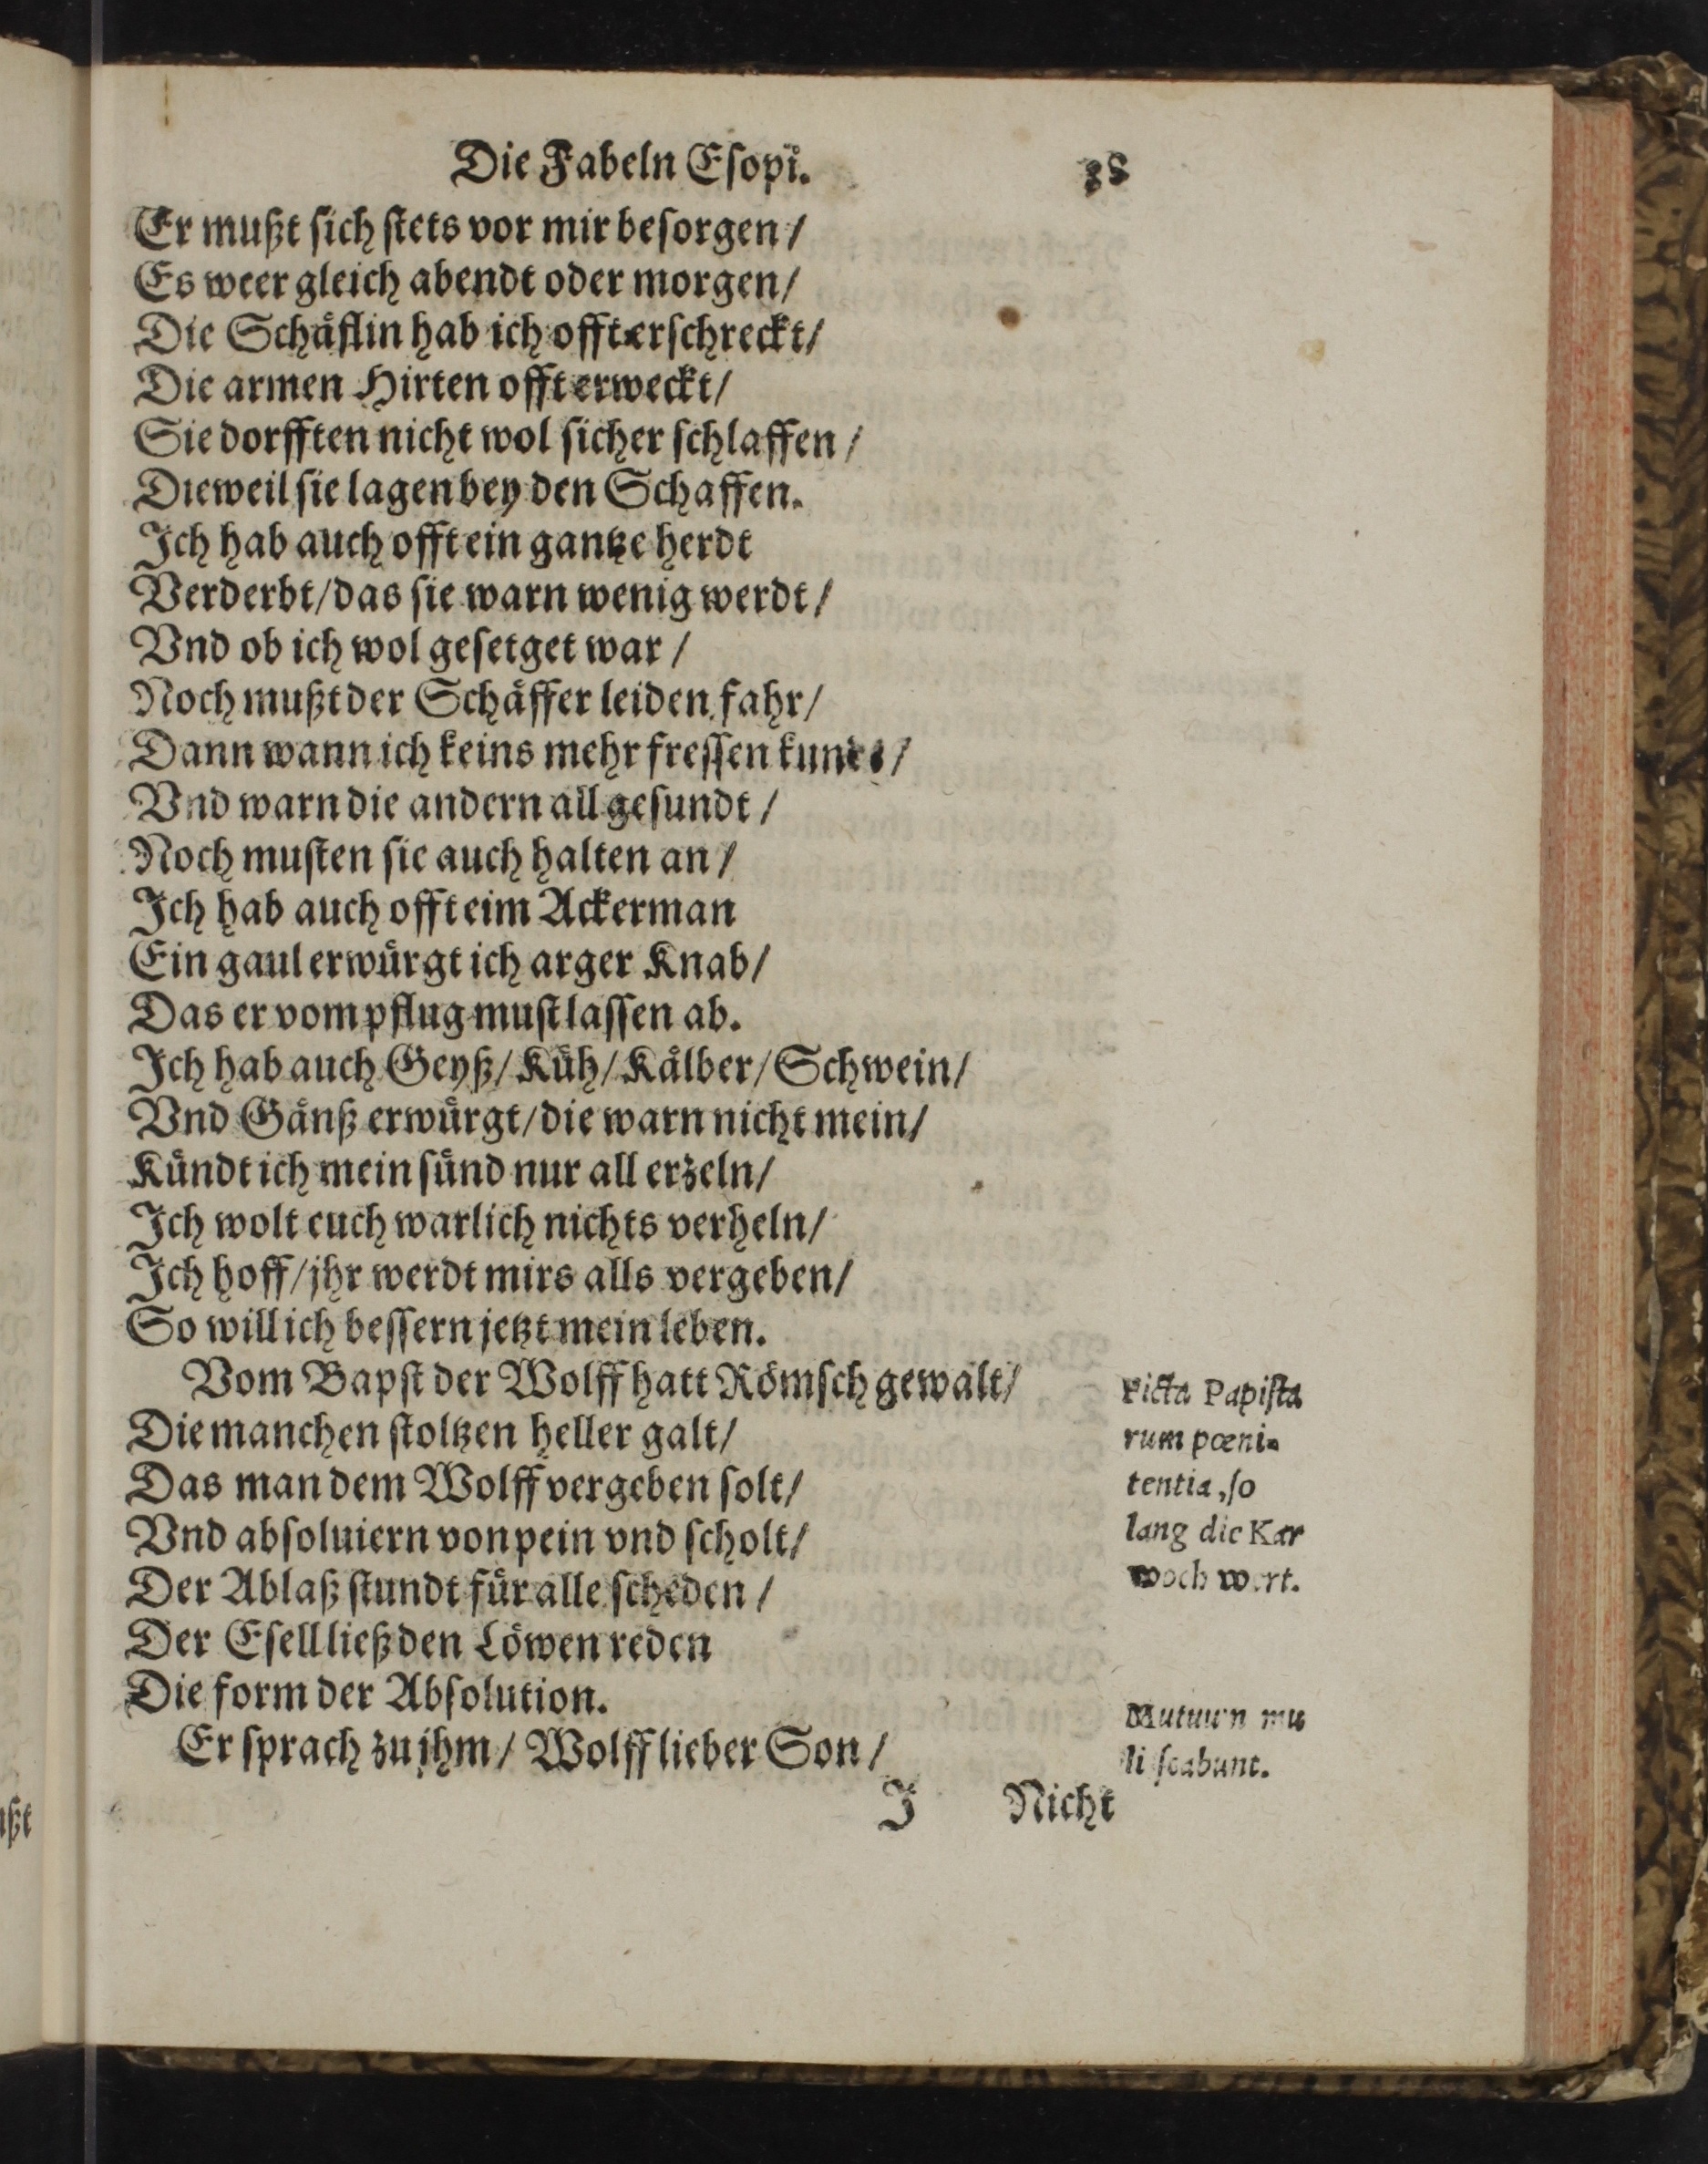 Die Fabeln Esopi. 38
Er mußt sich stets vor mir besorgen /
Es weer gleich abendt oder morgen /
Die Schäflin hab ich offt erschreckt /
Die armen Hirten offt erweckt /
Sie dorfften nicht wol sicher schlaffen /
Dieweil sie lagen bey den Schaffen.
Ich hab auch offt ein gantze herdt
Verderbt / das sie warn wenig werdt /
Vnd ob ich wol gesetget war /
Noch mußt der Schäffer leiden fahr /
Dann wann ich keins mehr fressen kundt /
Vnd warn die andern all gesundt /
Noch musten sie auch halten an /
Ich hab auch offt eim Ackerman
Ein gaul erwürgt ich arger Knab /
Das er vom pflug must lassen ab.
Ich hab auch Geyß / Küh / Kälber / Schwein /
Vnd Gänß erwürgt / die warn nicht mein /
Kündt ich mein sünd nur all erzeln /
Ich wolt euch warlich nichts verheln /
Ich hoff / jhr werdt mirs alls vergeben /
So will ich bessern jetzt mein leben.
Vom Bapst der Wolff hatt Römsch gewalt /
Die manchen stoltzen heller galt /
Das man dem Wolff vergeben solt /
Vnd absoluiern von pein vnd scholt /
Der Ablaß stundt für alle scheden /
Der Esell ließ den Löwen reden
Die form der Absolution.
Er sprach zu jhm / Wolff lieber Son /
Ficta Papista
rum pœni-
tentia, so
lang die Kar
woch wert.
Mutuum mu
li scabunt.
J Nicht